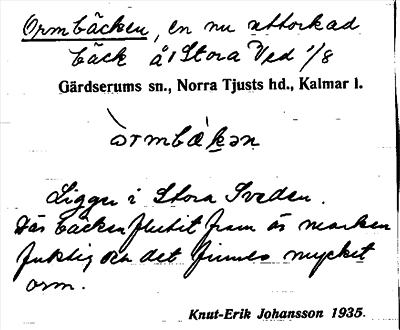 Ormbäcken, en nu uttorkad
bäck å Stora Ved 1/8
Gärdserums sn., Norra Tjusts hd., Kalmar l.
òrmbækən
Ligger i Stora Sveden.
Där bäcken flutit fram är marken
fuktig och det finnes mycket
orm.
Knut-Erik Johansson 1935.